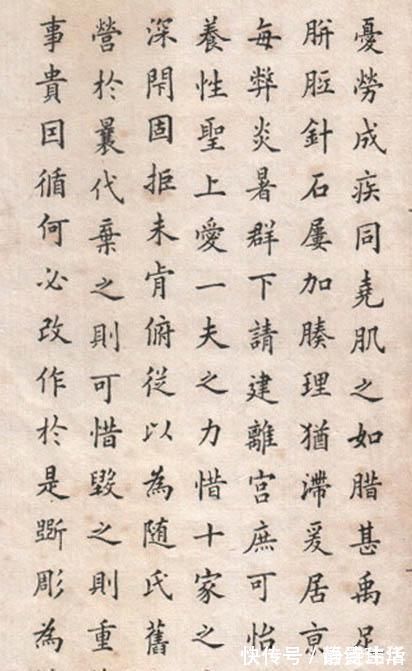 憂勞成疾同堯肌之如腊甚禹足
胼胝針石屢加腠理猶滯爰居京
每弊炎暑群下請建離宮庶可怡
養性聖上愛一夫之力惜十家之
深閇固拒未肯俯從以為隨氏舊
營於曩代棄之則可惜毀之則重
事貴因循何必改作於是斲彫為
快传号/